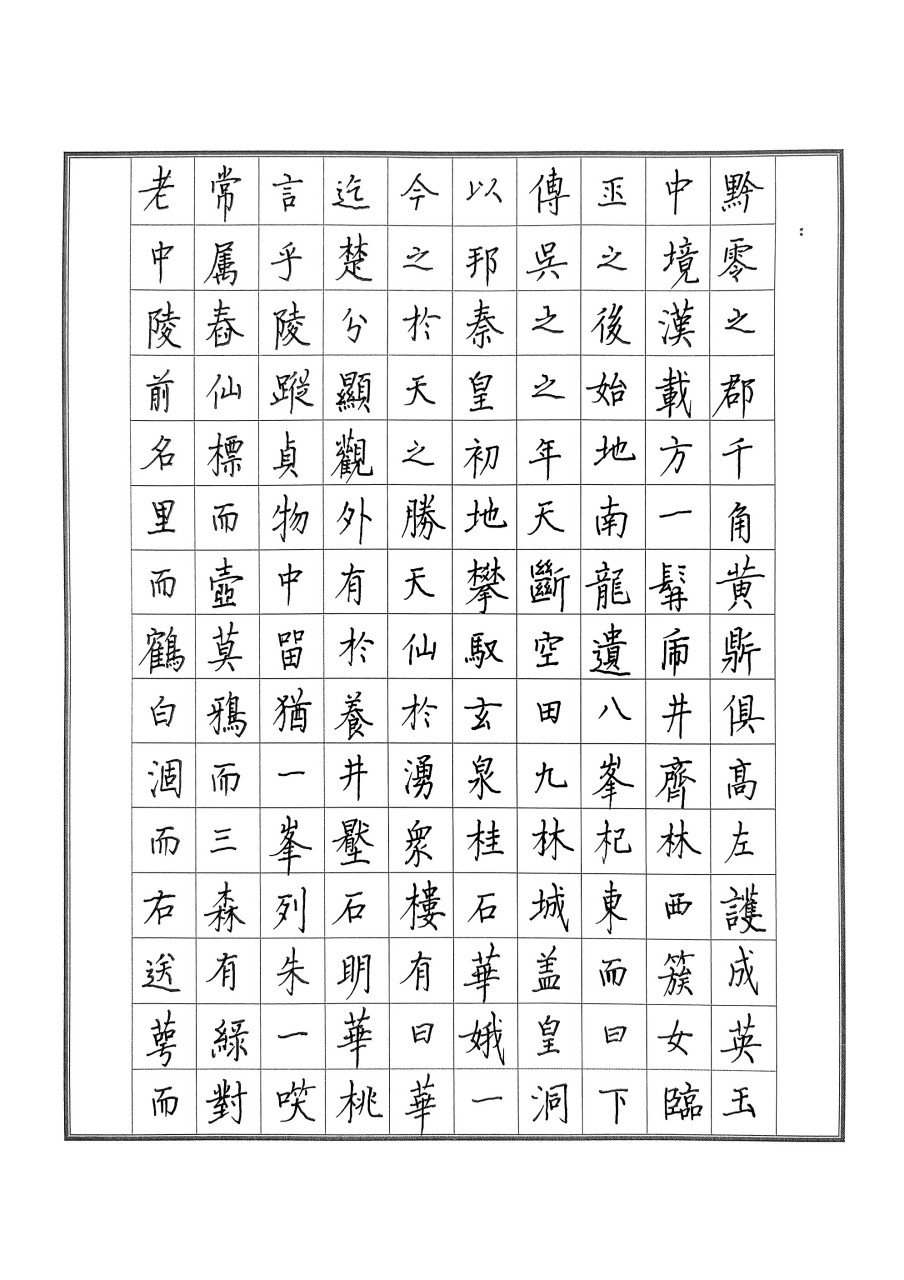 黔零之郡千角黄鼎俱高左護成英玉
中境漢載方一髯乕井齊林西簇女臨
巫之後始地南龍遺八峯杞東而曰下
傳吳之之年天斷空田九林城盖皇洞
以邦秦皇初地攀馭玄泉桂石華娥一
今之於天之勝天仙於湧衆樓有曰華
迄楚分顯觀外有於養井壓石明華桃
言乎陵蹤貞物中留猶一峯列朱一咲
常属舂仙標而壺莫鴉而三森有綠對
老中陵前名里而鶴白涸而右送萼而